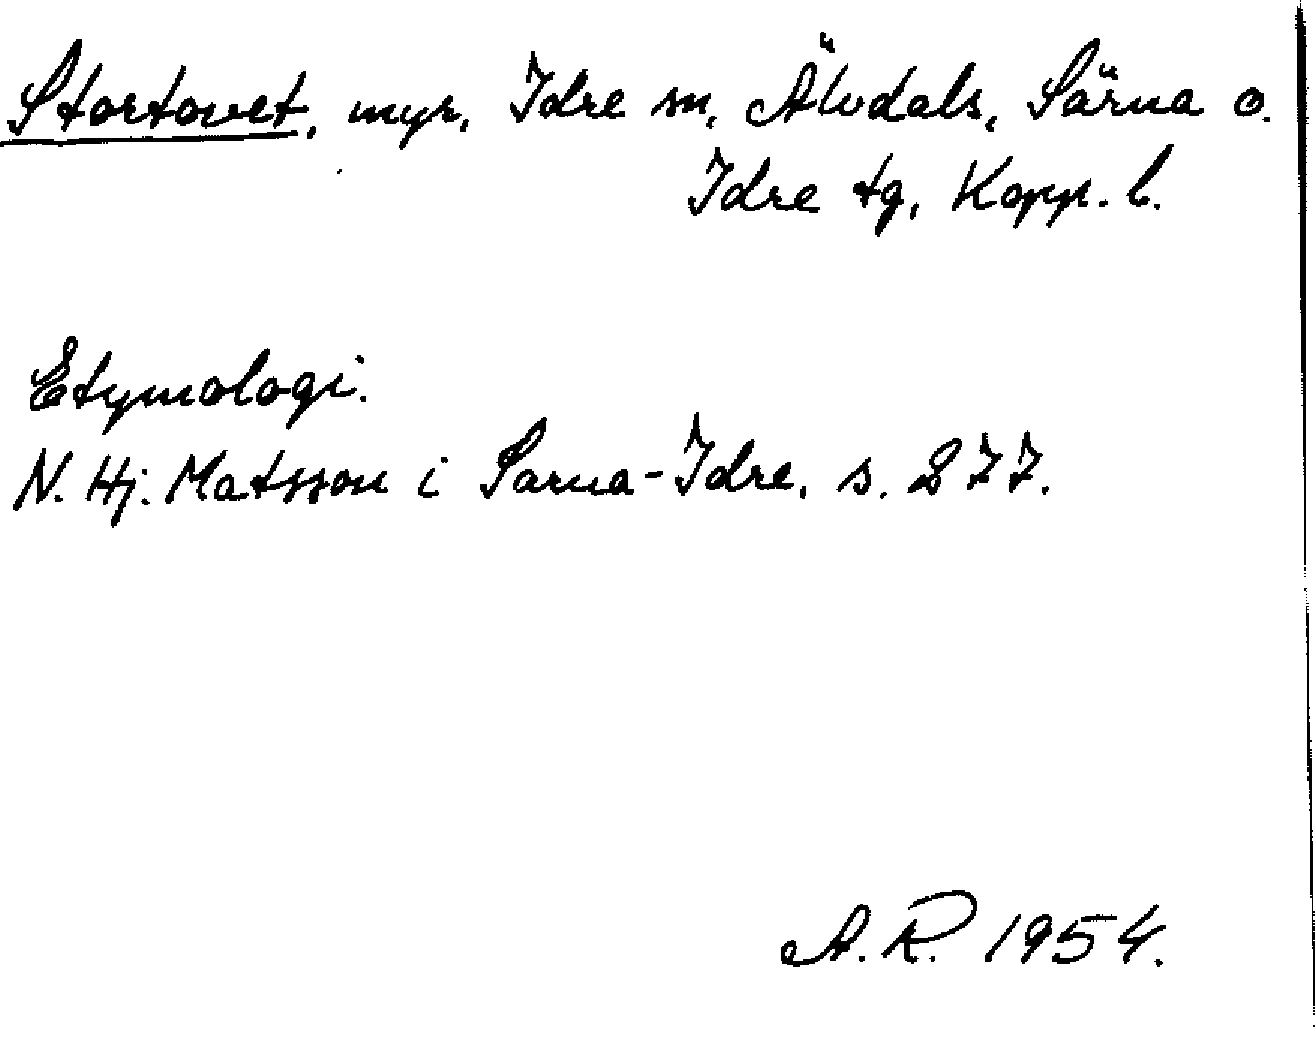 Stortovet, myr, Idre sn, Älvdals, Särna o.
Idre tg, Kopp. l.
Etymologi.
N. Hj. Matsson i Sarna-Idre, s. 277.
A. R. 1954.